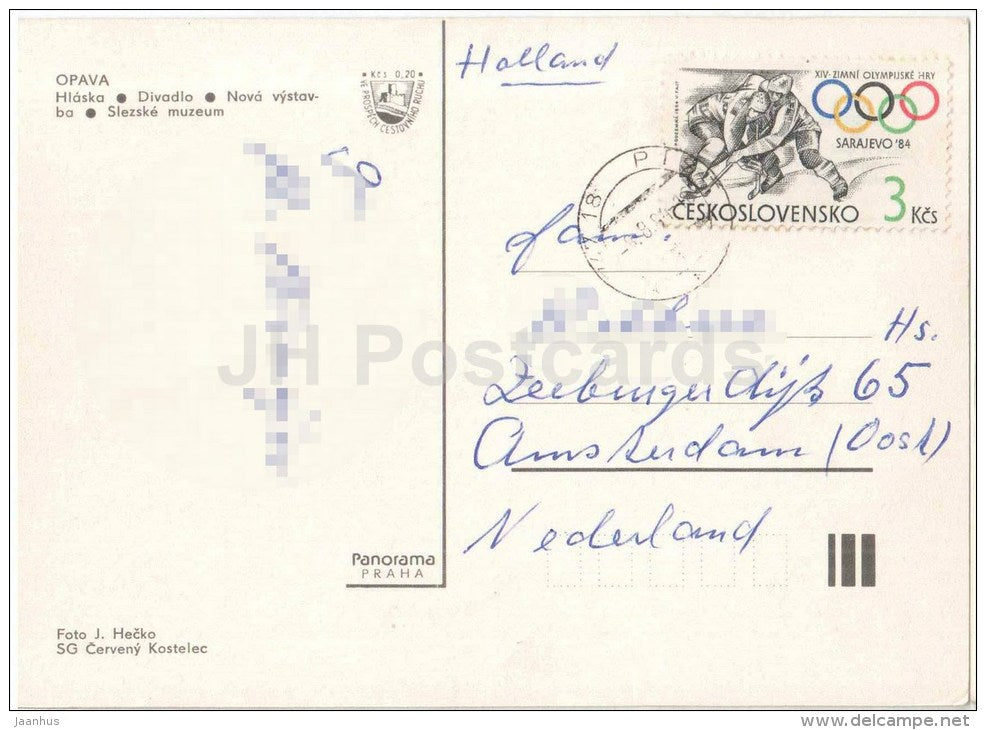 OPAVA
Hláska ● Divadlo ● Nová výstav-
ba ● Slezské muzeum
Kčs 0,20
VE PROSPĚCH CESTOVNÍHO RUCHU
Holland
XIV. ZIMNÍ OLYMPIJSKÉ HRY
SARAJEVO '84
ČESKOSLOVENSKO 3 Kčs
Fam.
Hs.
Zeeburgerdijk 65
Amsterdam (Oost)
Nederland
JH Postcards
Panorama
PRAHA
Foto J. Hečko
SG Červený Kostelec
jaanhus
www.delcampe.net